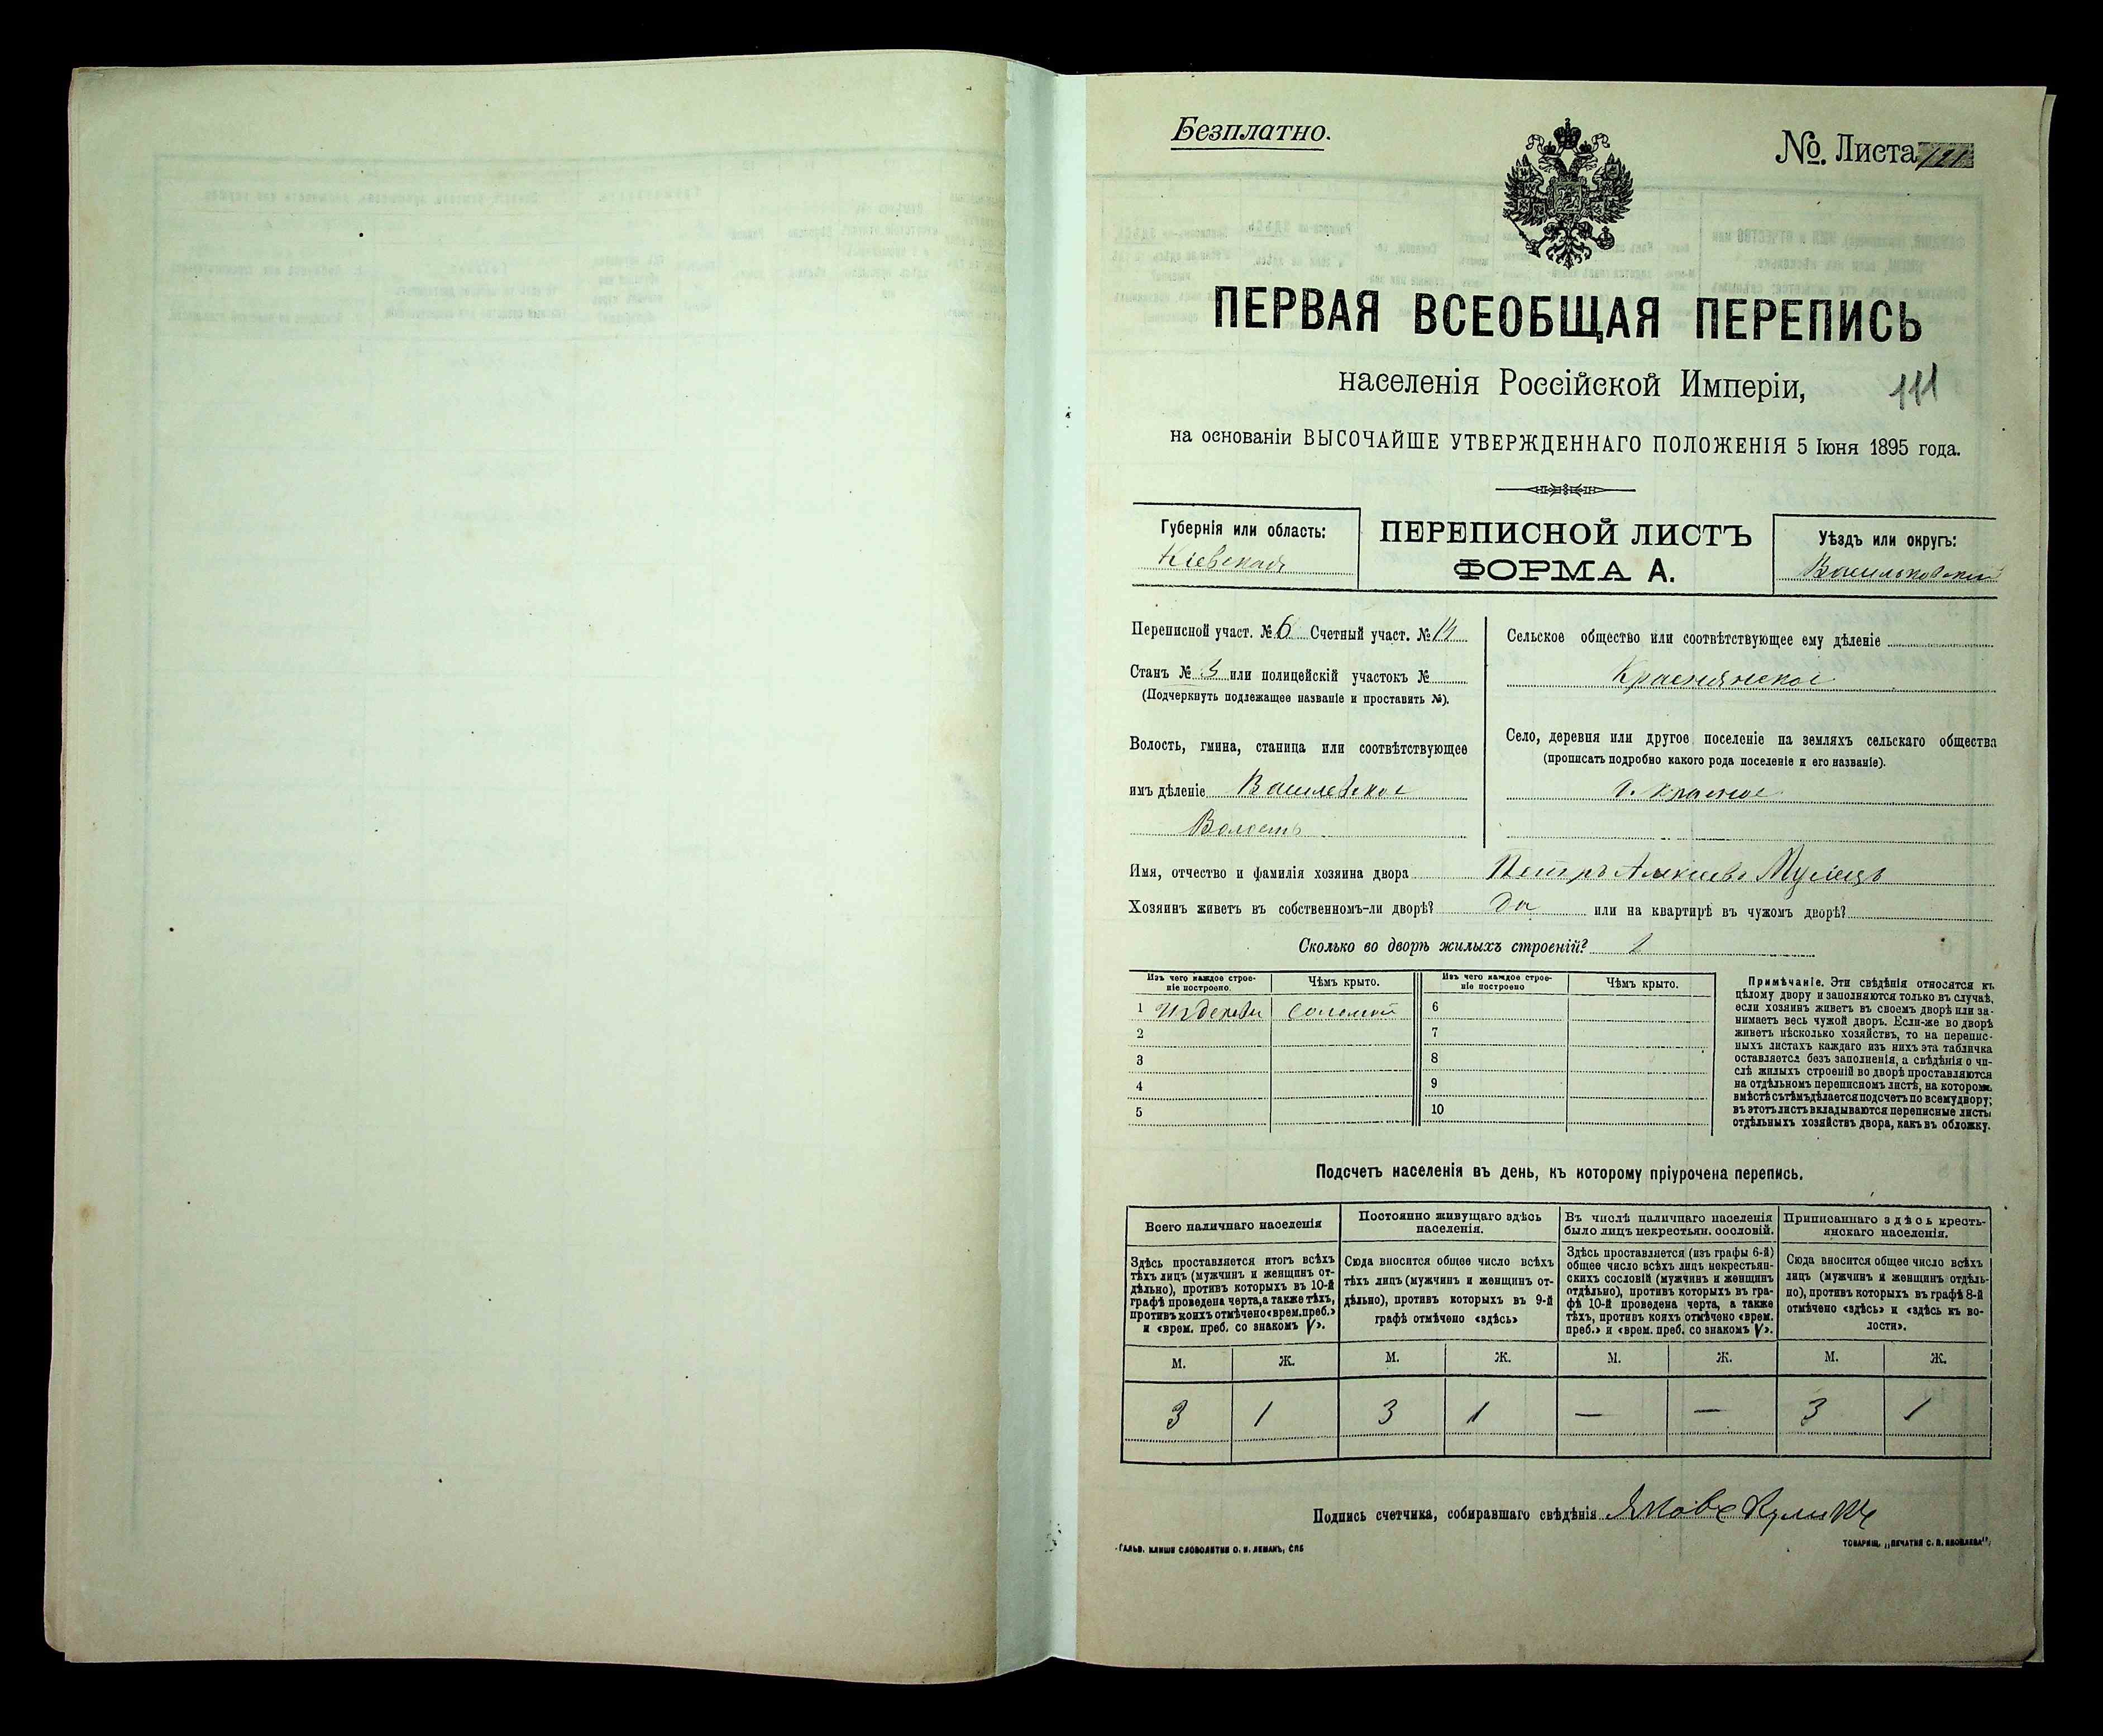 Безплатно.
№. Листа 121
ПЕРВАЯ ВСЕОБЩАЯ ПЕРЕПИСЬ
населенія Россійской Имперіи,
111
на основаніи ВЫСОЧАЙШЕ УТВЕРЖДЕННАГО ПОЛОЖЕНІЯ 5 Іюня 1895 года.
Губернія или область:
Кіевская
ПЕРЕПИСНОЙ ЛИСТЪ
ФОРМА А.
Уѣздъ или округъ:
Васильковскій
Переписной участ. № 6 Счетный участ. № 14
Станъ № 3 или полицейскій участокъ №
(Подчеркнуть подлежащее названіе и проставить №).
Волость, гмина, станица или соотвѣтствующее
имъ дѣленіе Василевское
Волость
Сельское общество или соотвѣтствующее ему дѣленіе
Краснянское
Село, деревня или другое поселеніе на земляхъ сельскаго общества
(прописать подробно какого рода поселеніе и его названіе).
с. Красное
Имя, отчество и фамилія хозяина двора Петръ Алексѣевъ
Хозяинъ живетъ въ собственномъ-ли дворѣ? Да или на квартирѣ въ чужомъ дворѣ?
Сколько во дворѣ жилыхъ строеній? 1
Изъ чего каждое строе-
ніе построено.
Чѣмъ крыто.
Изъ чего каждое строе-
ніе построено
Чѣмъ крыто.
1 Изъ дерева Соломой 6
2 7
3 8
4 9
5 10
Примѣчаніе. Эти свѣдѣнія относятся къ
цѣлому двору и заполняются только въ случаѣ,
если хозяинъ живетъ въ своемъ дворѣ или за-
нимаетъ весь чужой дворъ. Если-же во дворѣ
живетъ нѣсколько хозяйствъ, то на перепис-
ныхъ листахъ каждаго изъ нихъ эта табличка
оставляется безъ заполненія, а свѣдѣнія о чи-
слѣ жилыхъ строеній во дворѣ проставляются
на отдѣльномъ переписномъ листѣ, на которомъ
вмѣстѣ съ тѣмъ дѣлается подсчетъ по всему двору;
въ этотъ листъ вкладываются переписные листы
отдѣльныхъ хозяйствъ двора, какъ въ обложку.
Подсчетъ населенія въ день, къ которому пріурочена перепись.
Всего наличнаго населенія
Здѣсь проставляется итогъ всѣхъ
тѣхъ лицъ (мужчинъ и женщинъ от-
дѣльно), противъ которыхъ въ 10-й
графѣ проведена черта, а также тѣхъ,
противъ коихъ отмѣчено «врем. преб.»
и «врем. преб. со знакомъ V».
Постоянно живущаго здѣсь
населенія.
Сюда вносится общее число всѣхъ
тѣхъ лицъ (мужчинъ и женщинъ от-
дѣльно), противъ которыхъ въ 9-й
графѣ отмѣчено «здѣсь»
Въ числѣ наличнаго населенія
было лицъ некрестьян. сословій.
Здѣсь проставляется (изъ графы 6-й)
общее число всѣхъ лицъ некрестьян-
скихъ сословій (мужчинъ и женщинъ
отдѣльно), противъ которыхъ въ гра-
фѣ 10-й проведена черта, а также
тѣхъ, противъ коихъ отмѣчено «врем.
преб.» и «врем. преб. со знакомъ V».
Приписаннаго здѣсь кресть-
янскаго населенія.
Сюда вносится общее число всѣхъ
лицъ (мужчинъ и женщинъ отдѣль-
но), противъ которыхъ въ графѣ 8-й
отмѣчено «здѣсь» и «здѣсь къ во-
лости».
М. Ж. М. Ж. М. Ж. М. Ж.
3 1 3 1 — — 3 1
Подпись счетчика, собиравшаго свѣдѣнія Яковъ
ГАЛЬВ. КЛИШЕ СЛОВОЛИТНИ О. И. ЛЕМАНЪ, СПБ
ТОВАРИЩ. „ПЕЧАТНЯ С. П. ЯКОВЛЕВА“